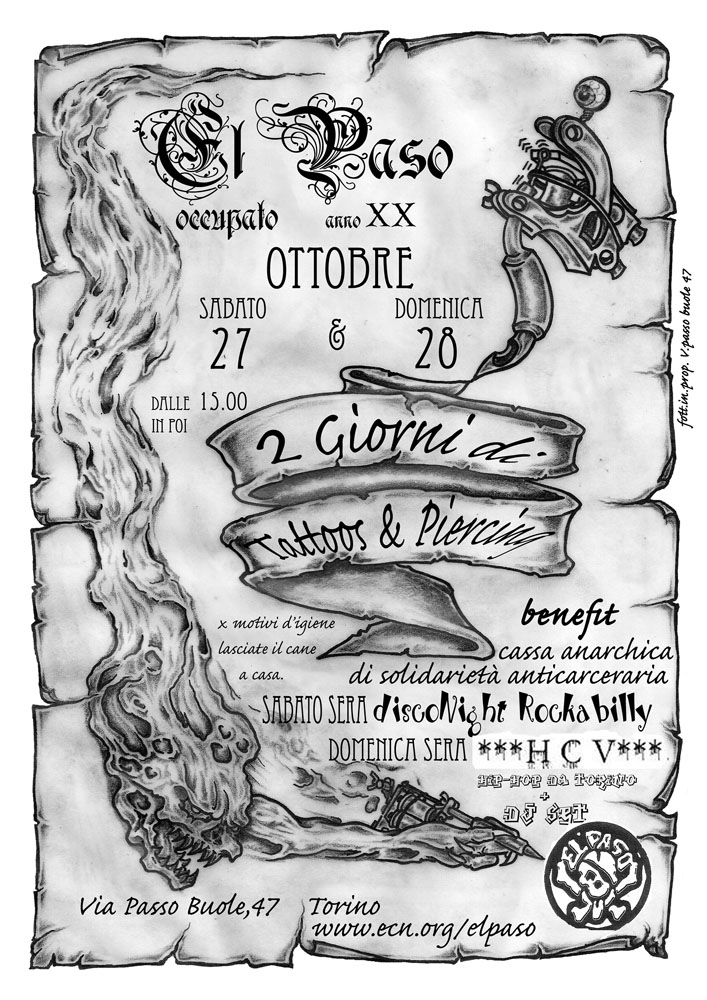 El Paso
occupato anno XX
OTTOBRE
SABATO & DOMENICA
27 28
DALLE 15.00
IN POI
2 Giorni di
Tattoos & Piercing
x motivi d'igiene
lasciate il cane
a casa.
benefit
cassa anarchica
di solidarietà anticarceraria
SABATO SERA discoNight Rockabilly
DOMENICA SERA ***H C V***
HIP-HOP DA TORINO
+
DJ SET
EL PASO
Via Passo Buole,47 Torino
www.ecn.org/elpaso
fott.in.prop. V.passo buole 47